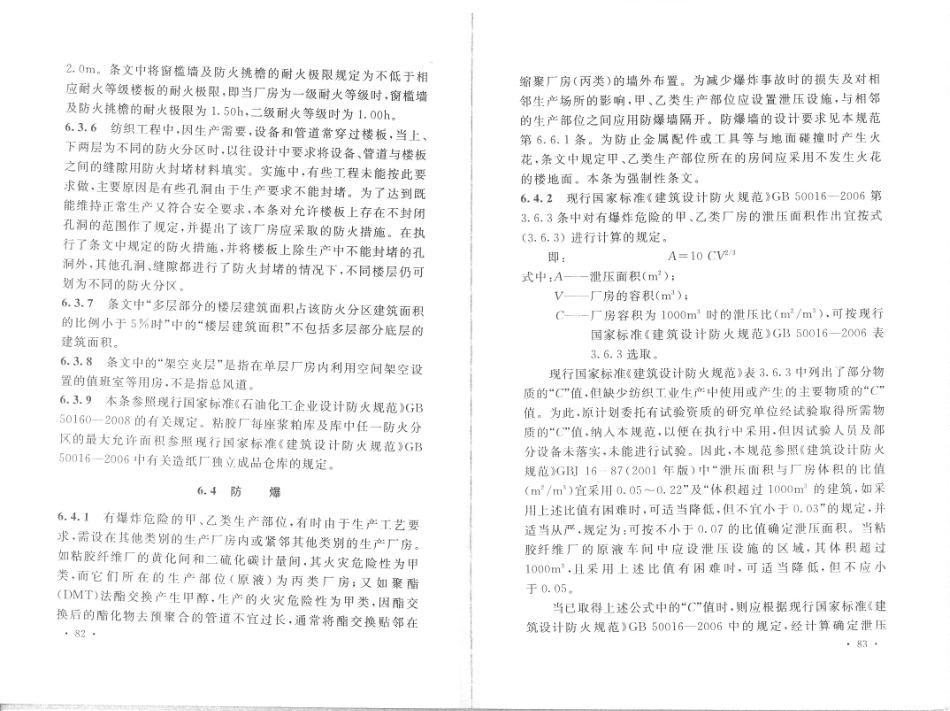 2.0m。条文中将窗槛墙及防火挑檐的耐火极限规定为不低于相
应耐火等级楼板的耐火极限,即当厂房为一级耐火等级时,窗槛墙
及防火挑檐的耐火极限为 1.50h,二级耐火等级时为 1.00h。
6.3.6 纺织工程中,因生产需要,设备和管道常穿过楼板,当上、
下两层为不同的防火分区时,以往设计中要求将设备、管道与楼板
之间的缝隙用防火封堵材料填实。实施中,有些工程未能按此要
求做,主要原因是有些孔洞由于生产要求不能封堵。为了达到既
能维持正常生产又符合安全要求,本条对允许楼板上存在不封闭
孔洞的范围作了规定,并提出了该厂房应采取的防火措施。在执
行了条文中规定的防火措施,并将楼板上除生产中不能封堵的孔
洞外,其他孔洞、缝隙都进行了防火封堵的情况下,不同楼层仍可
划为不同的防火分区。
6.3.7 条文中“多层部分的楼层建筑面积占该防火分区建筑面积
的比例小于 5%时”中的“楼层建筑面积”不包括多层部分底层的
建筑面积。
6.3.8 条文中的“架空夹层”是指在单层厂房内利用空间架空设
置的值班室等用房,不是指总风道。
6.3.9 本条参照现行国家标准《石油化工企业设计防火规范》GB
50160—2008 的有关规定。粘胶厂每座浆粕库及库中任一防火分
区的最大允许面积参照现行国家标准《建筑设计防火规范》GB
50016—2006 中有关造纸厂独立成品仓库的规定。
6.4 防 爆
6.4.1 有爆炸危险的甲、乙类生产部位,有时由于生产工艺要
求,需设在其他类别的生产厂房内或紧邻其他类别的生产厂房。
如粘胶纤维厂的黄化间和二硫化碳计量间,其火灾危险性为甲
类,而它们所在的生产部位(原液)为丙类厂房;又如聚酯
(DMT)法酯交换产生甲醇,生产的火灾危险性为甲类,因酯交
换后的酯化物去预聚合的管道不宜过长,通常将酯交换贴邻在
· 82 ·
缩聚厂房(丙类)的墙外布置。为减少爆炸事故时的损失及对相
邻生产场所的影响,甲、乙类生产部位应设置泄压设施,与相邻
的生产部位之间应用防爆墙隔开。防爆墙的设计要求见本规范
第 6.6.1 条。为防止金属配件或工具等与地面碰撞时产生火
花,条文中规定甲、乙类生产部位所在的房间应采用不发生火花
的楼地面。本条为强制性条文。
6.4.2 现行国家标准《建筑设计防火规范》GB 50016—2006 第
3.6.3 条中对有爆炸危险的甲、乙类厂房的泄压面积作出宜按式
(3.6.3) 进行计算的规定。
即: A=10 CV²ᐟ³
式中:A——泄压面积(m²);
V——厂房的容积(m³);
C——厂房容积为 1000m³ 时的泄压比(m²/m³),可按现行
国家标准《建筑设计防火规范》GB 50016—2006 表
3.6.3 选取。
现行国家标准《建筑设计防火规范》表 3.6.3 中列出了部分物
质的“C”值,但缺少纺织工业生产中使用或产生的主要物质的“C”
值。为此,原计划委托有试验资质的研究单位经试验取得所需物
质的“C”值,纳入本规范,以便在执行中采用,但因试验人员及部
分设备未落实,未能进行试验。因此,本规范参照《建筑设计防火
规范》GBJ 16—87(2001 年版)中“泄压面积与厂房体积的比值
(m²/m³)宜采用 0.05～0.22”及“体积超过 1000m³ 的建筑,如采
用上述比值有困难时,可适当降低,但不宜小于 0.03”的规定,并
适当从严,规定为:可按不小于 0.07 的比值确定泄压面积。当粘
胶纤维厂的原液车间中应设泄压设施的区域,其体积超过
1000m³,且采用上述比值有困难时,可适当降低,但不应小
于 0.05。
当已取得上述公式中的“C”值时,则应根据现行国家标准《建
筑设计防火规范》GB 50016—2006 中的规定,经计算确定泄压
· 83 ·